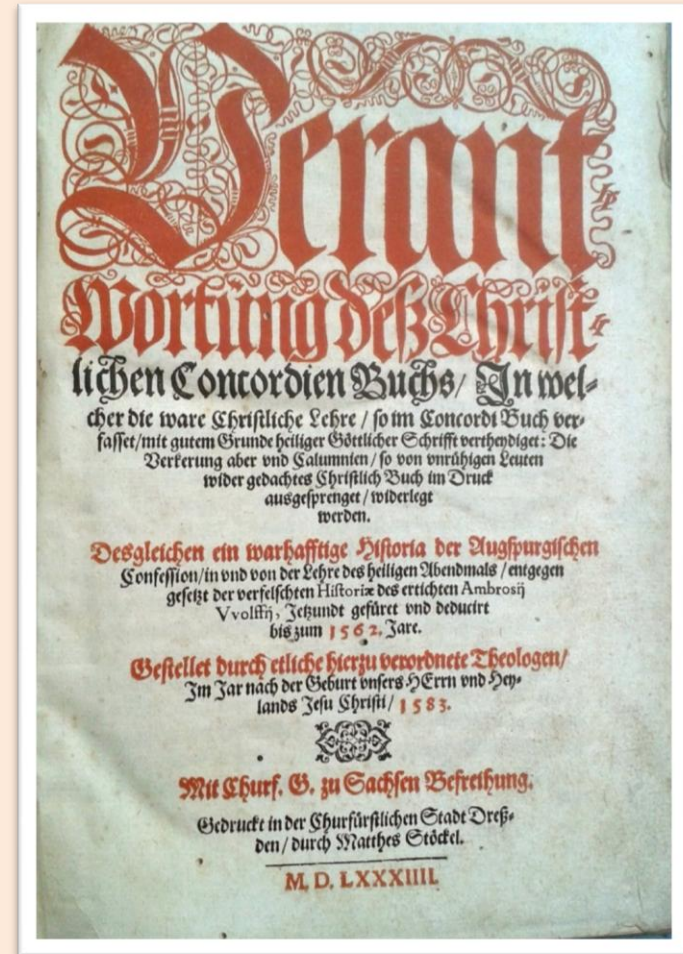 Verant
Wortung deß Christ-
lichen Concordien Buchs / In wel-
cher die ware Christliche Lehre / so im Concordi Buch ver-
fasset / mit gutem Grunde heiliger Göttlicher Schrifft vertheydiget: Die
Verkerung aber vnd Calumnien / so von vnrühigen Leuten
wider gedachtes Christlich Buch im Druck
ausgesprenget / widerlegt
werden.
Desgleichen ein warhafftige Historia der Augspurgischen
Confession / in vnd von der Lehre des heiligen Abendmals / entgegen
gesetzt der verfelschten Historiæ des ertichten Ambrosij
Vvolffij, Jetzundt gefüret vnd deducirt
bis zum 1562. Jare.
Gestellet durch etliche hierzu verordnete Theologen /
Im Jar nach der Geburt vnsers HErrn vnd Hey-
lands Jesu Christi / 1583.
Mit Churf. G. zu Sachsen Befreihung.
Gedruckt in der Churfürstlichen Stadt Dreß-
den / durch Matthes Stöckel.
M. D. LXXXIIII.